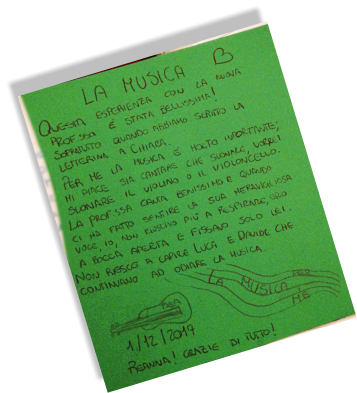 LA MUSICA
QUESTA ESPERIENZA CON LA NUOVA
PROF.SSA È STATA BELLISSIMA!
SOPRATUTTO QUANDO ABBIAMO SCRITTO LA
LETTERINA A CHIARA.
PER ME LA MUSICA È MOLTO IMPORTANTE;
MI PIACE SIA CANTARE CHE SUONARE, VORREI
SUONARE IL VIOLINO O IL VIOLONCELLO.
LA PROF.SSA CANTA BENISSIMO E QUANDO
CI HA FATTO SENTIRE LA SUA MERAVIGLIOSA
VOCE, IO, NON RIUSCIVO PIÙ A RESPIRARE, ERO
A BOCCA APERTA E FISSAVO SOLO LEI.
NON RIESCO A CAPIRE LUCA E DAVIDE CHE
CONTINUANO AD ODIARE LA MUSICA.
LA MUSICA PER
È ME
1/12/2017
! GRAZIE DI TUTTO!